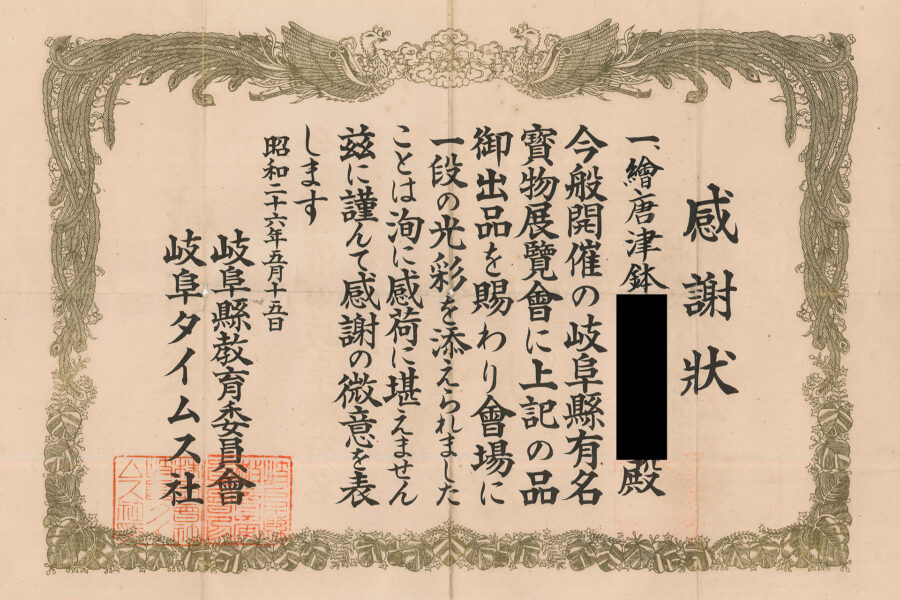 感謝狀
一、繪唐津鉢
殿
今般開催の岐阜縣有名
寶物展覽會に上記の品
御出品を賜わり會場に
一段の光彩を添えられました
ことは洵に感荷に堪えません
茲に謹んて感謝の微意を表
します
昭和二十六年五月十五日
岐阜縣教育委員會
岐阜タイムス社